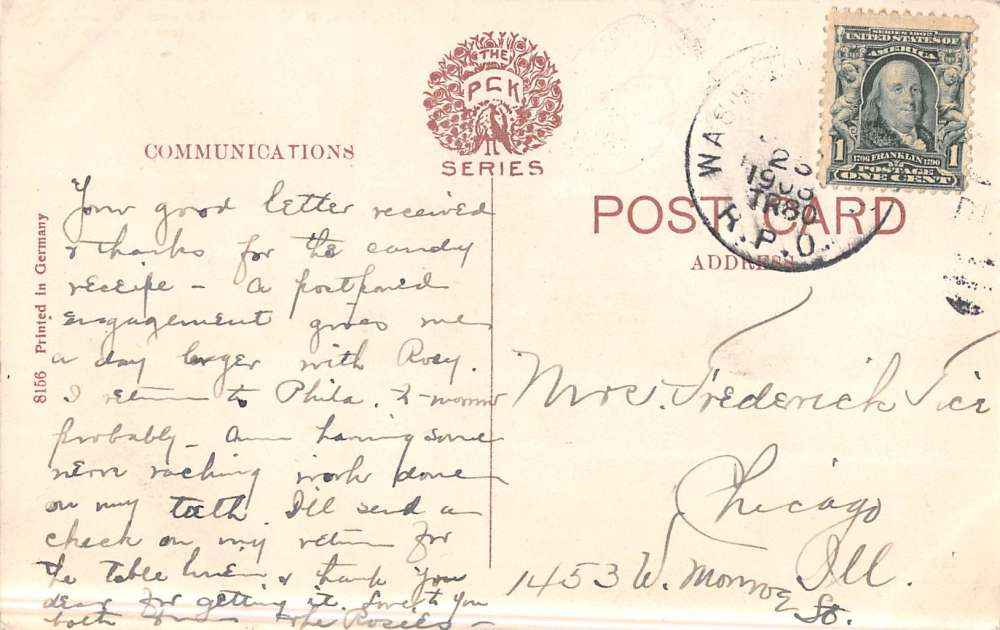 THE
PCK
SERIES
COMMUNICATIONS
POST CARD
ADDRESS
8156 Printed in Germany
SERIES 1902
UNITED STATES OF
AMERICA
1706 FRANKLIN 1790
POSTAGE
1 ONE CENT 1
WASH
23
1908
TR80
R.P.O.
Your good letter received
& thanks for the candy
receipe – A postponed
engagement gives me
a day longer with Rosy.
I return to Phila. to-morrow
probably – Am having some
nerve racking work done
on my teeth. I'll send a
check on my return for
the table linen & thank you
dear for getting it. Love to you
both from the Rosies –
Mrs. Frederick Tice
Chicago
Ill.
1453 W. Monroe St.